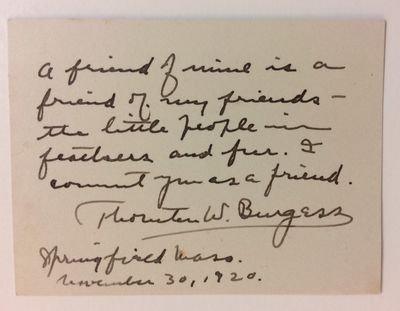 A friend of mine is a
friend of my friends –
the little people in
feathers and fur. I
count you as a friend.
Thornton W. Burgess
Springfield Mass.
November 30, 1920.